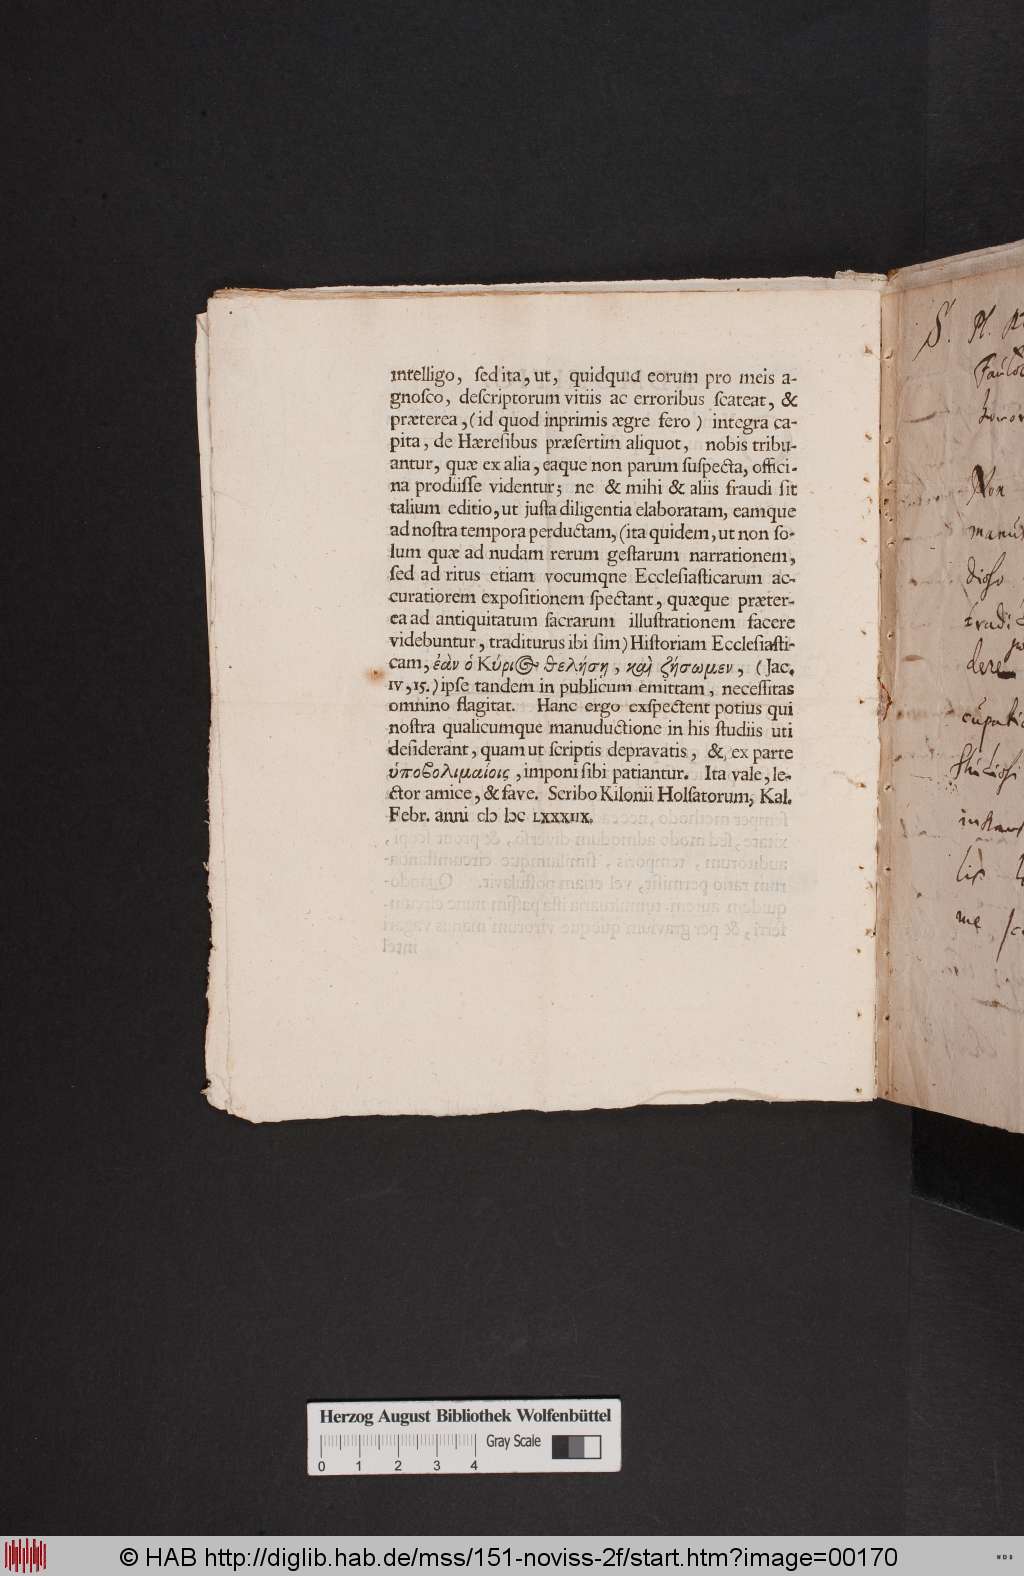 intelligo, ſed ita, ut, quidquid eorum pro meis a-
gnoſco, deſcriptorum vitiis ac erroribus ſcateat, &
præterea, (id quod inprimis ægre fero) integra ca-
pita, de Hæreſibus præſertim aliquot, nobis tribu-
antur, quæ ex alia, eaque non parum ſuſpecta, offici-
na prodiiſſe videntur; ne & mihi & aliis fraudi ſit
talium editio, ut juſta diligentia elaboratam, eamque
ad noſtra tempora perductam, (ita quidem, ut non ſo-
lum quæ ad nudam rerum geſtarum narrationem,
ſed ad ritus etiam vocumqne Eccleſiaſticarum ac-
curatiorem expoſitionem ſpectant, quæque præter-
ea ad antiquitatum ſacrarum illuſtrationem facere
videbuntur, traditurus ibi ſim) Hiſtoriam Eccleſiaſti-
cam, ἐὰν ὁ Κύριος θελήσῃ, καὶ ζήσωμεν, (Jac.
IV, 15.) ipſe tandem in publicum emittam, neceſſitas
omnino flagitat. Hanc ergo exſpectent potius qui
noſtra qualicumque manuductione in his ſtudiis uti
deſiderant, quam ut ſcriptis depravatis, & ex parte
ὑποβολιμαίοις, imponi ſibi patiantur. Ita vale, le-
ctor amice, & fave. Scribo Kilonii Holſatorum, Kal.
Febr. anni cIɔ Iɔc LXXXIIX.
S. Pl.
Non
dioſo
dere
me
Herzog August Bibliothek Wolfenbüttel
Gray Scale
0 1 2 3 4
© HAB http://diglib.hab.de/mss/151-noviss-2f/start.htm?image=00170